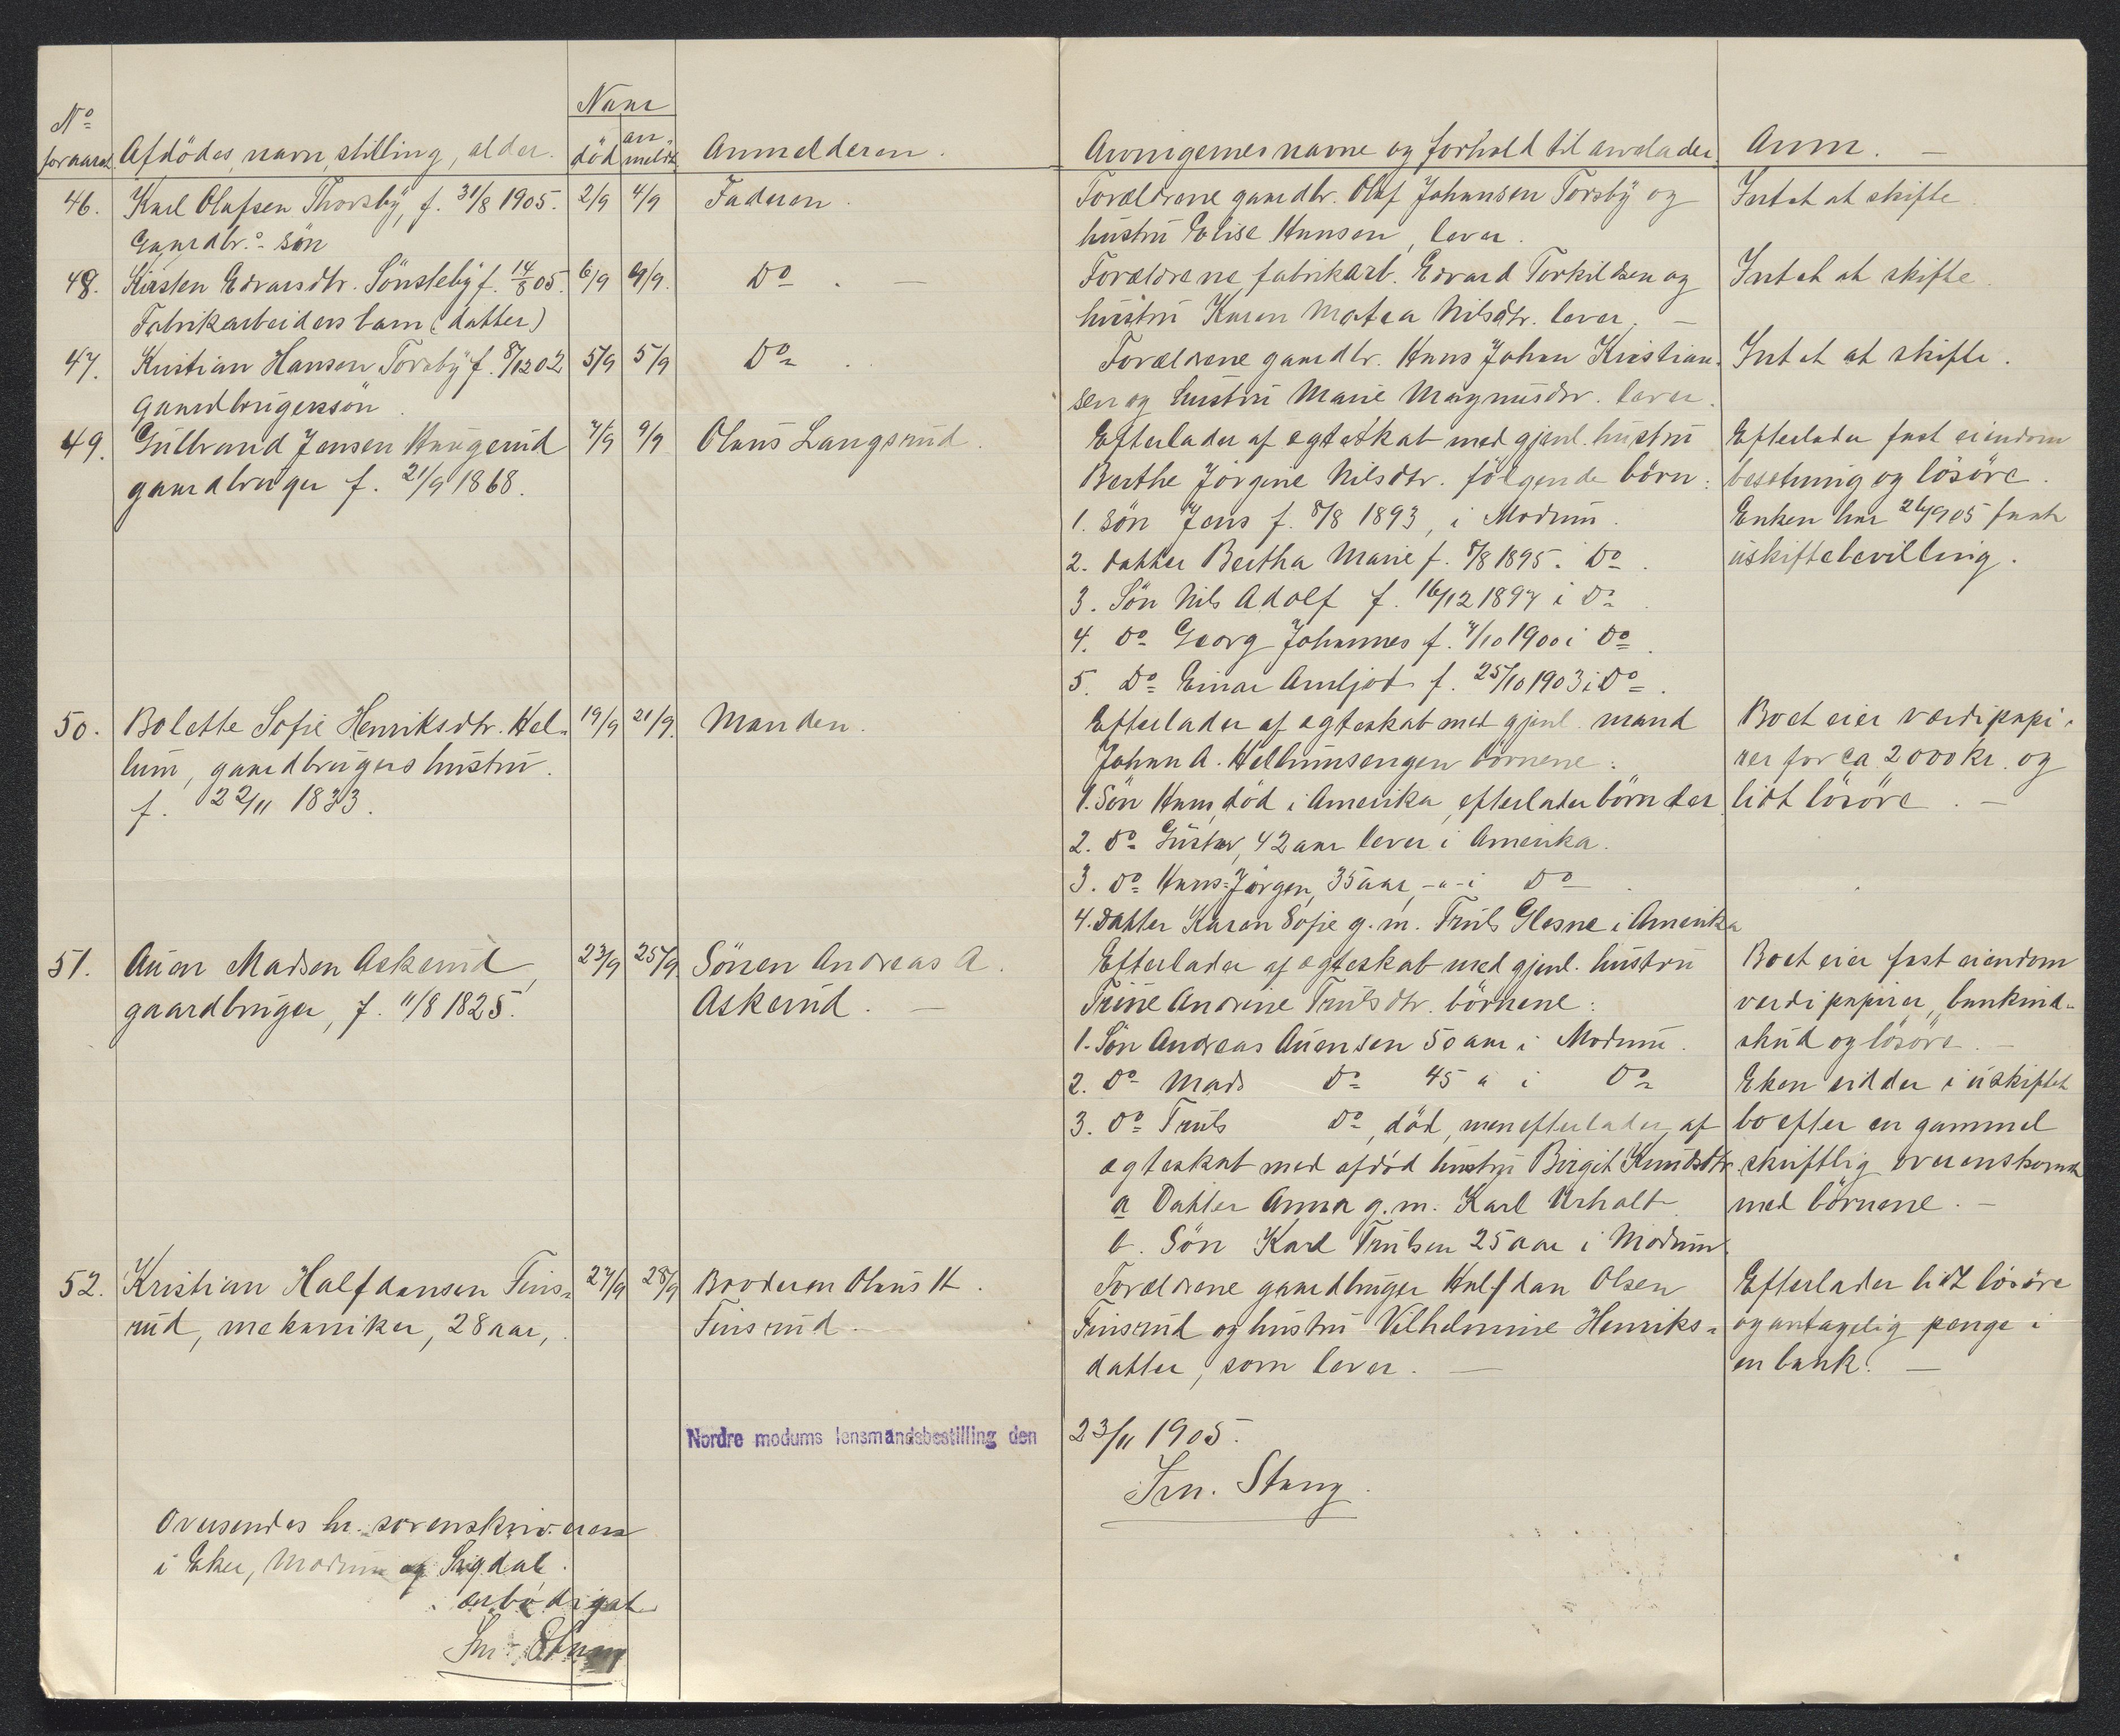 No for aaret. Afdödes navn, stilling, alder. Naar död anmeldt Anmelderen. Arvingernes navne og forhold til arvelader Anm. —
46. Karl Olafsen Thorsby, f. 31/8 1905. 2/9 4/9 Faderen. Forældrene gaardbr. Olaf Johansen Torsby og Intet at skifte
Gaardbr.s sön hustru Elise Hansen, lever.
48. Kirsten Edvardsdtr. Sönsteby f. 14/8 05. 6/9 9/9. Do. — Forældrene fabrikarb. Edvard Torkildsen og Intet at skifte
Fabrikarbeiders barn (datter) hustru Karen Matea Nilsdtr. lever. —
47. Kristian Hansen Torsby f. 8/12 02 5/9 5/9 Do. Forældrene gaardbr. Hans Johan Kristian- Intet at skifte.
gaardbrugersön. sen og hustru Marie Magnusdtr. lever.
49. Gulbrand Jensen Haugerud 7/9 9/9 Olaus Langsrud. Efterlader af egteskab med gjenl. hustru Efterlader fast eiendom
gaardbruger f. 21/9 1868. Berthe Jörgine Nilsdtr. fölgende börn: besetning og lösöre.
1. sön Jens f. 8/8 1893, i Modum. Enken har 26/9 05 faat
2. datter Bertha Marie f. 8/8 1895 i Do. uskiftebevilling.
3. Sön Nils Adolf f. 16/12 1897 i Do.
4. Do Georg Johannes f. 7/10 1900 i Do.
5. Do Einar Arnljot f. 25/10 1903 i Do.
50. Bolette Sofie Henriksdtr. Hel- 19/9 21/9. Manden. Efterlader af egteskab med gjenl. mand Boet eier værdipapi-
lum, gaardbrugers hustru. Johan A. Hellumsengen börnene: rer for ca 2000 kr. og
f. 22/11 1833. 1. Sön Hans, död i Amerika, efterlader börn der lidt lösöre. —
2. Do Gustav, 42 aar lever i Amerika.
3. Do Hans-Jörgen, 35 aar, -"- i Do.
4. Datter Karen Sofie g. m. Truls Glesne i Amerika
51. Auen Madsen Askerud, 23/9 25/9. Sönen Andreas A. Efterlader af egteskab med gjenl. hustru Boet eier fast eiendom
gaardbruger, f. 11/8 1825. Askerud. — Trine Andrine Trulsdtr. börnene: verdipapirer, bankind-
1. Sön Andreas Auensen 50 aar i Modum. skud og lösöre. —
2. Do Mads Do 45 " i Do Eken sidder i uskiftet
3. Do Truls Do, död, men efterlader, af bo efter en gammel
egteskab med afdöd hustru Birgit Knudsdtr. skriftlig overenskomst
a Datter Anna g. m. Karl Urholt med börnene. —
b. Sön Karl Trulsen 25 aar i Modum
52. Kristian Halfdansen Fins- 27/9 28/9 Broderen Olaus H. Forældrene gaardbruger Halfdan Olsen Efterlader lidt lösöre
rud, mekaniker, 28 aar, Finsrud. Finsrud og hustru Vilhelmine Henriks- og antagelig penge i
datter, som lever. — en bank. —
Nordre modums lensmandsbestilling den 23/11 1905.
Stang.
Oversendes hr. sorenskriveren
i Eker, Modum og Sigdal.
ærbödigst
Stang